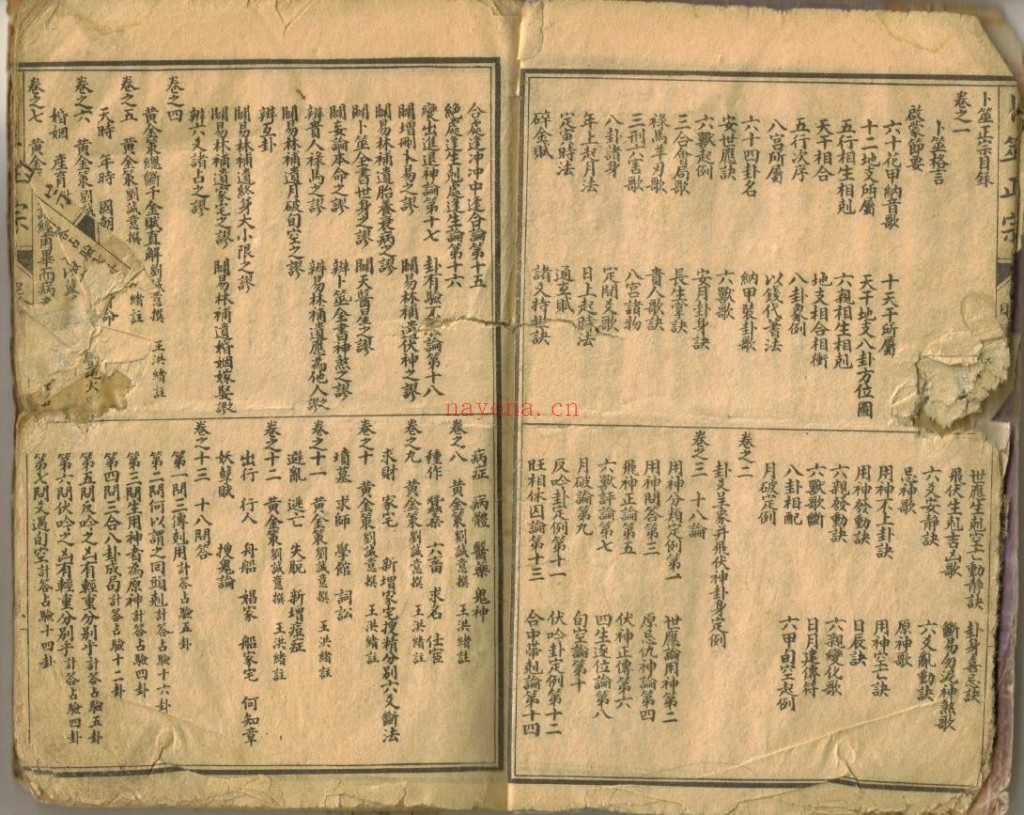 卜筮正宗目錄
卷之一
卜筮格言
啟蒙節要
六十花甲納音歌 十天干所屬
十二地支所屬 天干地支八卦方位圖
五行相生相剋 六親相生相剋
天干相合 地支相合相衝
五行次序 八卦象例
八宮所屬 以錢代蓍法
六十四卦名 納甲裝卦歌
安世應訣 六獸歌
六獸起例 安月卦身訣
三合會局歌 長生掌訣
祿馬羊刃歌 貴人歌訣
三刑六害歌 八宮諸物
八卦諸身 定間爻歌
年上起月法 日上起時法
定寅時法 通玄賦
碎金賦 諸爻持世訣
世應生剋空亡動靜訣 卦身喜忌訣
飛伏生剋吉凶歌 斷易勿泥神煞歌
六爻安靜訣 六爻亂動訣
忌神歌 原神歌
用神不上卦訣 用神空亡訣
用神發動訣 日辰訣
六親發動訣 六親變化歌
六獸歌斷 日月建傳符
八卦相配 六甲旬空起例
月破定例
卷之二
卦爻呈象并飛伏神卦身定例
卷之三 十八論
用神分類定例第一 世應論用神第二
用神問答第三 原忌仇神論第四
飛神正論第五 伏神正傳第六
六獸評論第七 四生逐位論第八
月破論第九 旬空論第十
反吟卦定例第十一 伏吟卦定例第十二
旺相休囚論第十三 合中帶剋論第十四
合處逢沖沖中逢合論第十五
絕處逢生剋處逢生論第十六
變出進退神論第十七 卦有驗不驗論第十八
闢增刪卜易之謬 闢易林補遺伏神之謬
闢易林補遺胎養衰病之謬
闢卜筮全書世身之謬 闢天醫星之謬
闢妄論本命之謬 辨卜筮全書神煞之謬
辨貴人祿馬之謬 辨易林補遺應為他人之謬
闢易林補遺月破旬空之謬
辨互卦
闢易林補遺終身大小限之謬
闢易林補遺家宅之謬 闢易林補遺婚姻嫁娶之謬
辨六爻諸占之謬
卷之四
黃金策總斷千金賦直解劉誠意撰 王洪緒註
卷之五 黃金策劉誠意撰
天時 年時 國朝
卷之六 黃金策劉誠
婚姻 產育
卷之七 黃金
病症 病體 醫藥 鬼神
卷之八 黃金策劉誠意撰 王洪緒註
種作 蠶桑 六畜 求名 仕宦
卷之九 黃金策劉誠意撰 王洪緒註
求財 家宅 新增家宅搜精分別六爻斷法
卷之十 黃金策劉誠意撰 王洪緒註
墳墓 求師 學館 詞訟
卷之十一 黃金策劉誠意撰 王洪緒註
避亂 逃亡 失脫 新增痘症
卷之十二 黃金策劉誠意撰 王洪緒註
出行 行人 舟船 娼家 船家宅 何知章
妖孽賦 搜鬼論
卷之十三 十八問答
第一問三傳剋用計答占驗五卦
第二問何以謂之回頭剋計答占驗十六卦
第三問生用神者為原神計答占驗四卦
第四問三合八卦成局計答占驗十二卦
第五問反吟之凶有輕重分別乎計答占驗五卦
第六問伏吟之凶有輕重分別乎計答占驗四卦
第七問爻遇旬空計答占驗十四卦
nayona.cn